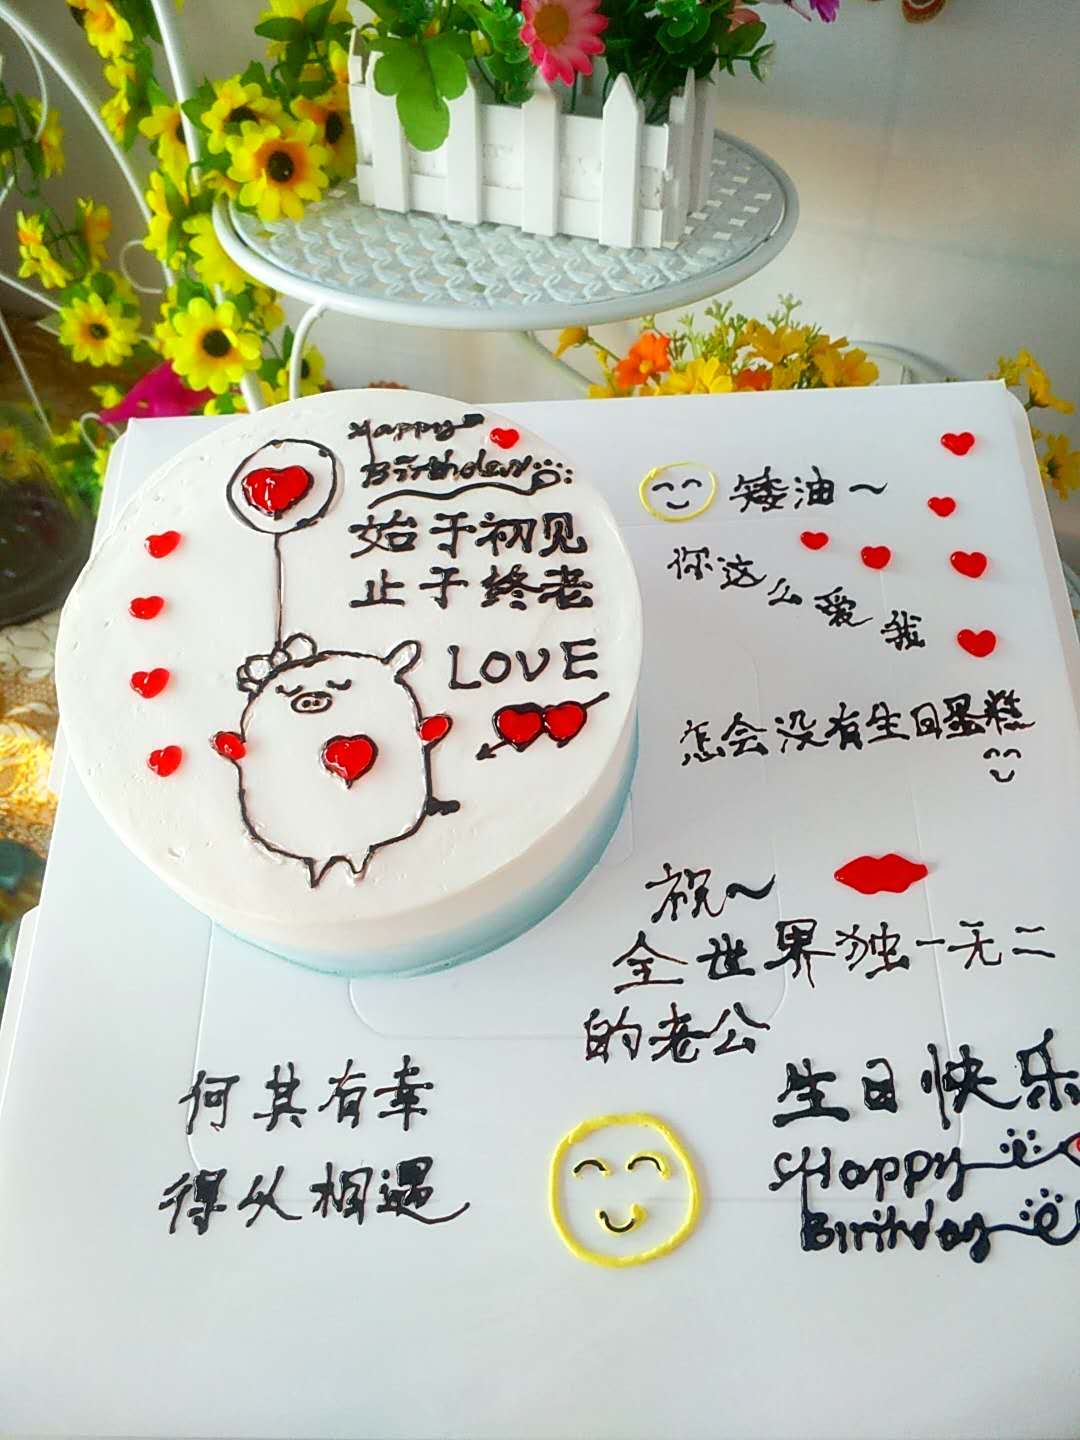 Happy
Birthday
始于初见
止于终老
LOVE
矮油~
你这么爱我
怎会没有生日蛋糕
祝~
全世界独一无二
的老公
生日快乐
Happy
Birthday
何其有幸
得以相遇